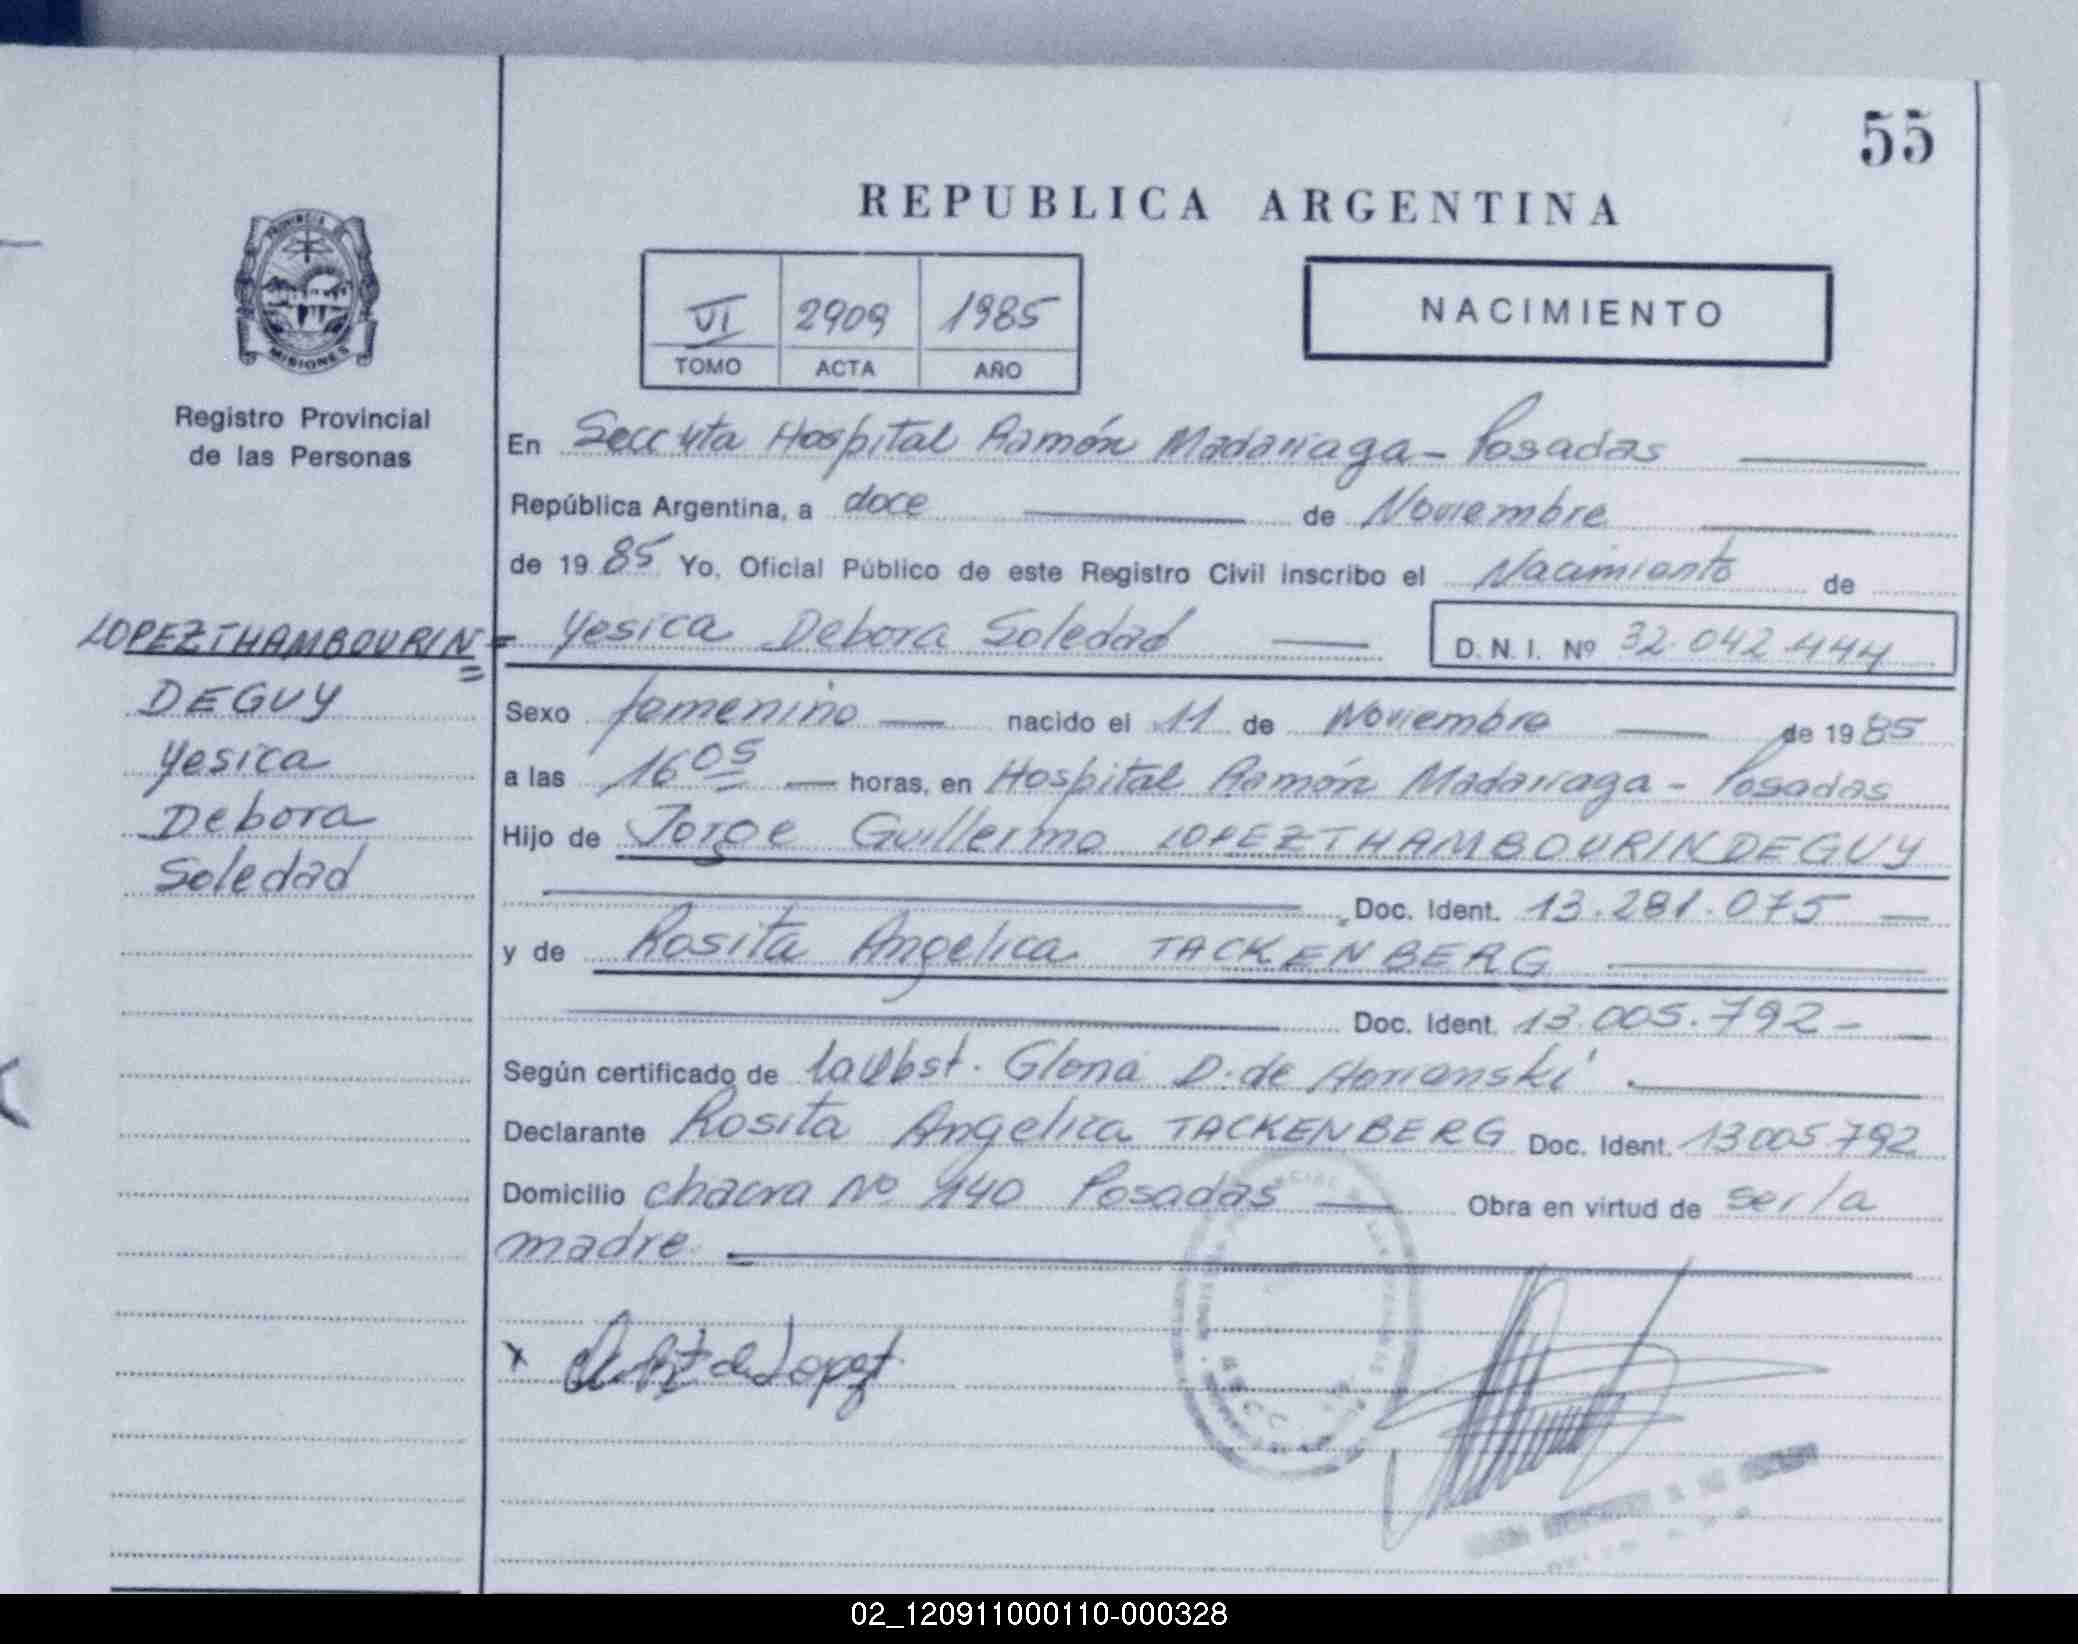 55
REPUBLICA ARGENTINA
PROVINCIA DE
MISIONES
VI 2909 1985
TOMO ACTA AÑO
NACIMIENTO
Registro Provincial
de las Personas
En Secc 4ta Hospital Ramón Madariaga - Posadas
República Argentina, a doce de Noviembre
de 19 85 Yo, Oficial Público de este Registro Civil inscribo el Nacimiento de
LOPEZTHAMBOURIN= Yesica Debora Soledad D. N. I. Nº 32.042.444
DEGUY
Yesica
Debora
Soledad
Sexo femenino nacido el 11 de Noviembre de 19 85
a las 16 05 horas, en Hospital Ramón Madariaga - Posadas
Hijo de Jorge Guillermo LOPEZTHAMBOURINDEGUY
Doc. Ident. 13.281.075
y de Rosita Angelica TACKENBERG
Doc. Ident. 13.005.792-
Según certificado de la Obst. Gloria D. de
Declarante Rosita Angelica TACKENBERG Doc. Ident. 13005792
Domicilio chacra Nº 140 Posadas Obra en virtud de ser la
madre.
x de Lopez
SECC.
02_120911000110-000328